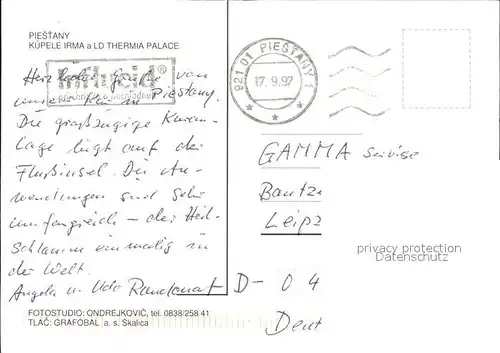 PIEŠŤANY
KÚPELE IRMA a LD THERMIA PALACE
Herzliche Grüße von
unserer Kur in Piestany.
Die großzügige Kuran-
lage liegt auf der
Flußinsel. Die An-
wendungen sind sehr
umfangreich – der Heil-
schlamm einmalig in
der Welt.
Angela u. Udo
FOTOSTUDIO: ONDREJKOVIČ, tel. 0838/258 41
TLAČ: GRAFOBAL a. s. Skalica
influcid®
921 01 PIEŠŤANY 1
17. 9. 97
GAMMA Service
Bautz
Leipz
D - 04
Deut
privacy protection
Datenschutz